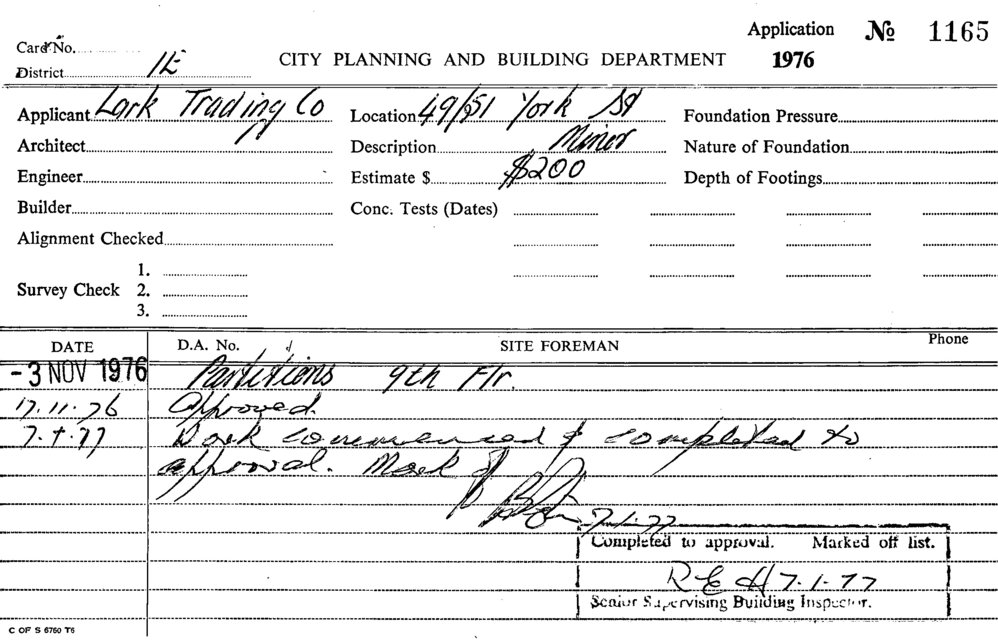 Application No 1165
Card No.
CITY PLANNING AND BUILDING DEPARTMENT 1976
District 1E
Applicant Lark Trading Co Location 49/51 York St Foundation Pressure
Architect Description Minor Nature of Foundation
Engineer Estimate $ $200 Depth of Footings
Builder Conc. Tests (Dates)
Alignment Checked
1.
Survey Check 2.
3.
DATE D.A. No. SITE FOREMAN Phone
-3 NOV 1976 Partitions 9th Flr.
17.11.76 Approved.
7.1.77 Work commenced & completed to
approval. Mark
7.1.77
Completed to approval. Marked off list.
R E H 7.1.77
Senior Supervising Building Inspector.
C OF S 6750 T6